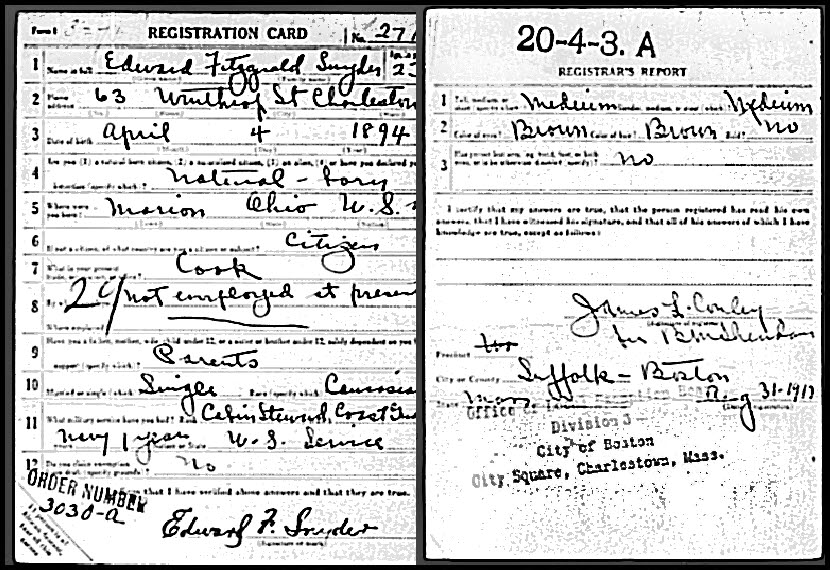 Form 1 REGISTRATION CARD No. 27
1 Name in full Edward Fitzgerald Snyder
2 Home address 63 Winthrop St Charlestown
3 Date of birth April 4 1894
Are you (1) a natural born citizen, (2) a naturalized citizen, (3) an alien, (4) or have you declared
4 intention (specify which)? Natural-born
5 Where were you born? Marion Ohio U.S.
6 If not a citizen, of what country are you a citizen or subject? Citizen
7 What is your present Cook
8 By whom not employed at present
Where employed
9 Have you a father, mother, wife, child under 12, or a sister or brother under 12, solely dependent on you
support (specify which)? Parents
10 Married or single (which)? Single Race (specify which)? Caucasia
11 What military service have you had? Rank Cabin Steward Coast
Navy 1 year U.S. Service
12 Do you claim exemption no
that I have verified above answers and that they are true.
ORDER NUMBER
3030-A
Edward F. Snyder
(Signature or mark)
20-4-3. A
REGISTRAR'S REPORT
1 Tall, medium, or Medium Medium
2 Color of eyes? Brown Color of hair? Brown Bald? No
3 Has person lost arm, leg, hand, foot, or both No
I certify that my answers are true, that the person registered has read his own
answers, that I have witnessed his signature, and that all of his answers of which I have
knowledge are true, except as follows:
James L. Conley
Precinct
City or County Suffolk-Boston
State Mass Aug 31-1917
Division 3
City of Boston
City Square, Charlestown, Mass.